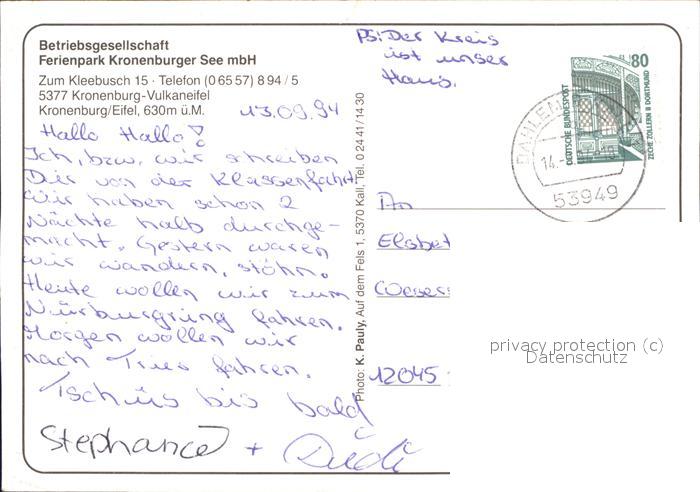 Betriebsgesellschaft
Ferienpark Kronenburger See mbH
Zum Kleebusch 15 · Telefon (0 65 57) 8 94 / 5
5377 Kronenburg-Vulkaneifel
Kronenburg/Eifel, 630m ü.M.
13.09.94
Hallo Hallo!
Ich, bzw. wir schreiben
Dir von der Klassenfahrt
Wir haben schon 2
Nächte halb durchge-
macht. Gestern waren
wir wandern, stöhn.
Heute wollen wir zum
Nürburgring fahren.
Morgen wollen wir
nach Trier fahren.
Tschüs bis bald
Stephanie + Rudi
PS: Der Kreis
ist unser
Haus.
Photo: K. Pauly, Auf dem Fels 1, 5370 Kall, Tel. 0 24 41/14 30
80
DEUTSCHE BUNDESPOST
ZECHE ZOLLERN II DORTMUND
DAHLEM
14.
53949
An
Elsbet
Weser
12045
privacy protection (c)
Datenschutz